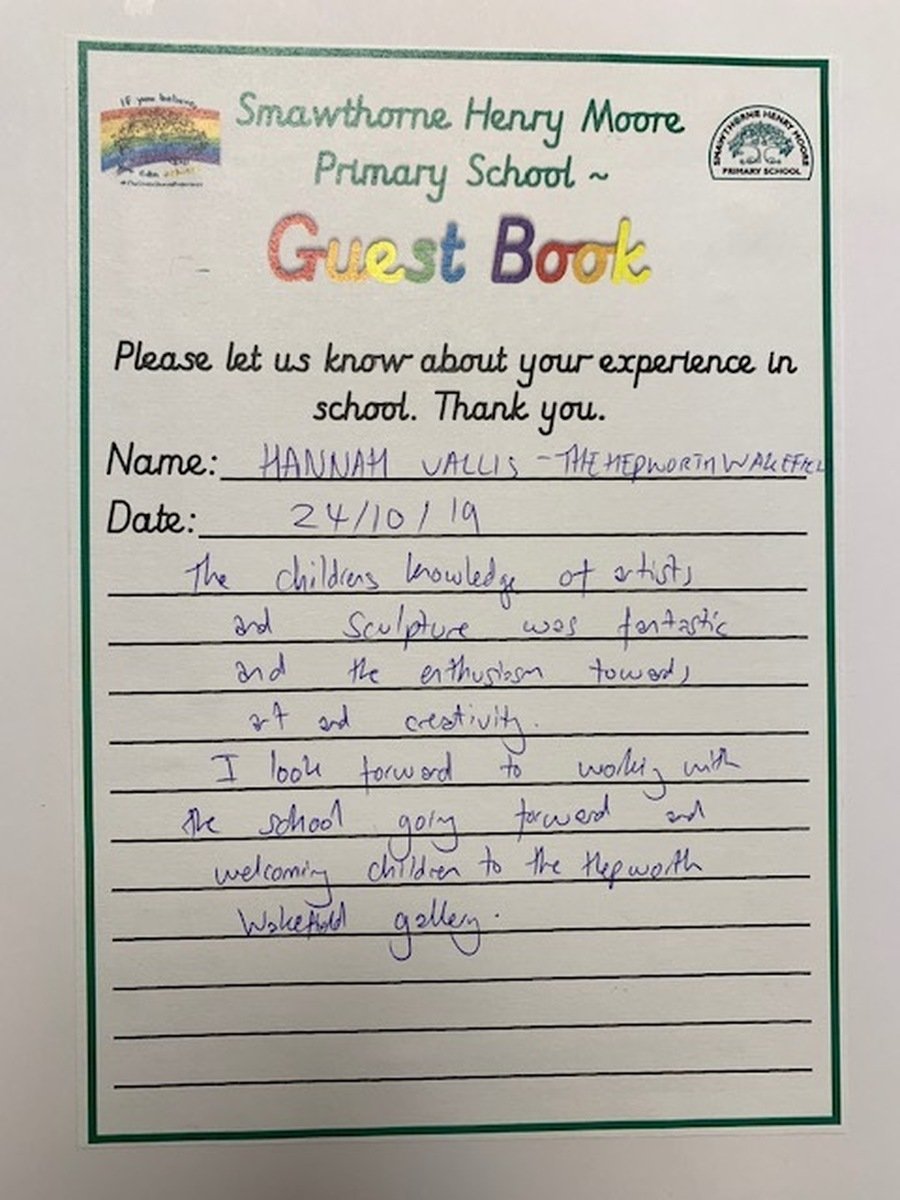 If you believe
you can achieve
Smawthorne Henry Moore
Primary School ~
SMAWTHORNE HENRY MOORE
PRIMARY SCHOOL
Guest Book
Please let us know about your experience in
school. Thank you.
Name: HANNAH VALLIS - THE HEPWORTH WAKEFIEL
Date: 24/10/19
The childrens knowledge of artists
and sculpture was fantastic
and the enthusiasm towards
art and creativity.
I look forward to working with
the school going forward and
welcoming children to the Hepworth
Wakefield gallery.